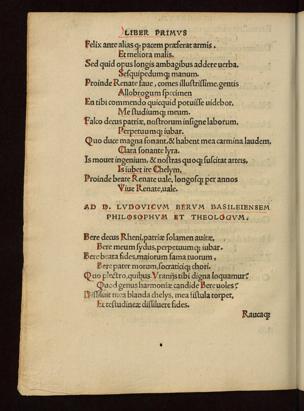 LIBER PRIMVS
Felix ante alias q̃ pacem præferat armis,
Et meliora malis.
Sed quid opus longis ambagibus addere verba.
Sesquipedumq; manum.
Proinde Renate faue, comes illustrissime, gentis
Allobrogum specimen
En tibi commendo quicquid potuisse uidebor,
Me studiumq; meum.
Falco decus patriæ, nostrorum insigne laborum.
Perpetuumq; iubar.
Quo duce magna sonant, & habent mea carmina laudem,
Clara sonante lyra.
Is mouet ingenium, & nostras quoq; suscitat arteis,
Is iubet ire Chelym,
Proinde beate Renate uale, longosq; per annos
Viue Renate, uale.
AD D. LVDOVICVM BERVM BASILEIENSEM
PHILOSOPHVM ET THEOLOGVM.
Bere decus Rheni, patriæ solamen auitæ,
Bere meum sydus, perpetuumq; iubar.
Bere beata fides, maiorum fama tuorum,
Bere pater morum, socraticiq; chori.
Quo plectro, quibus Vranijs tibi digna loquamur?
Quod genus harmoniæ candide Bere uoles?
Dissiluit mea blanda chelys, mea fistula torpet,
Et testudineæ dissiluere fides.
Raucaq;